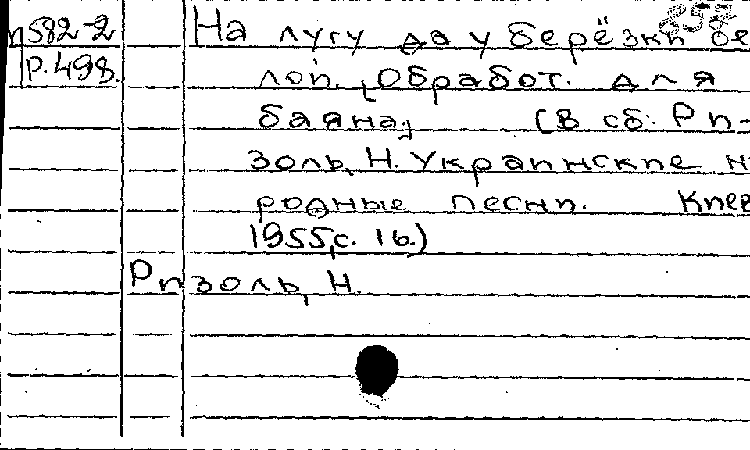 п582-2
Р.498.
257
На лугу да у берёзки бе
лой. [Обработ. для
баяна]   (В сб: Ри-
золь, Н. Украинские н
родные песни. Киев
1955, с. 16.)
Ризоль, Н.